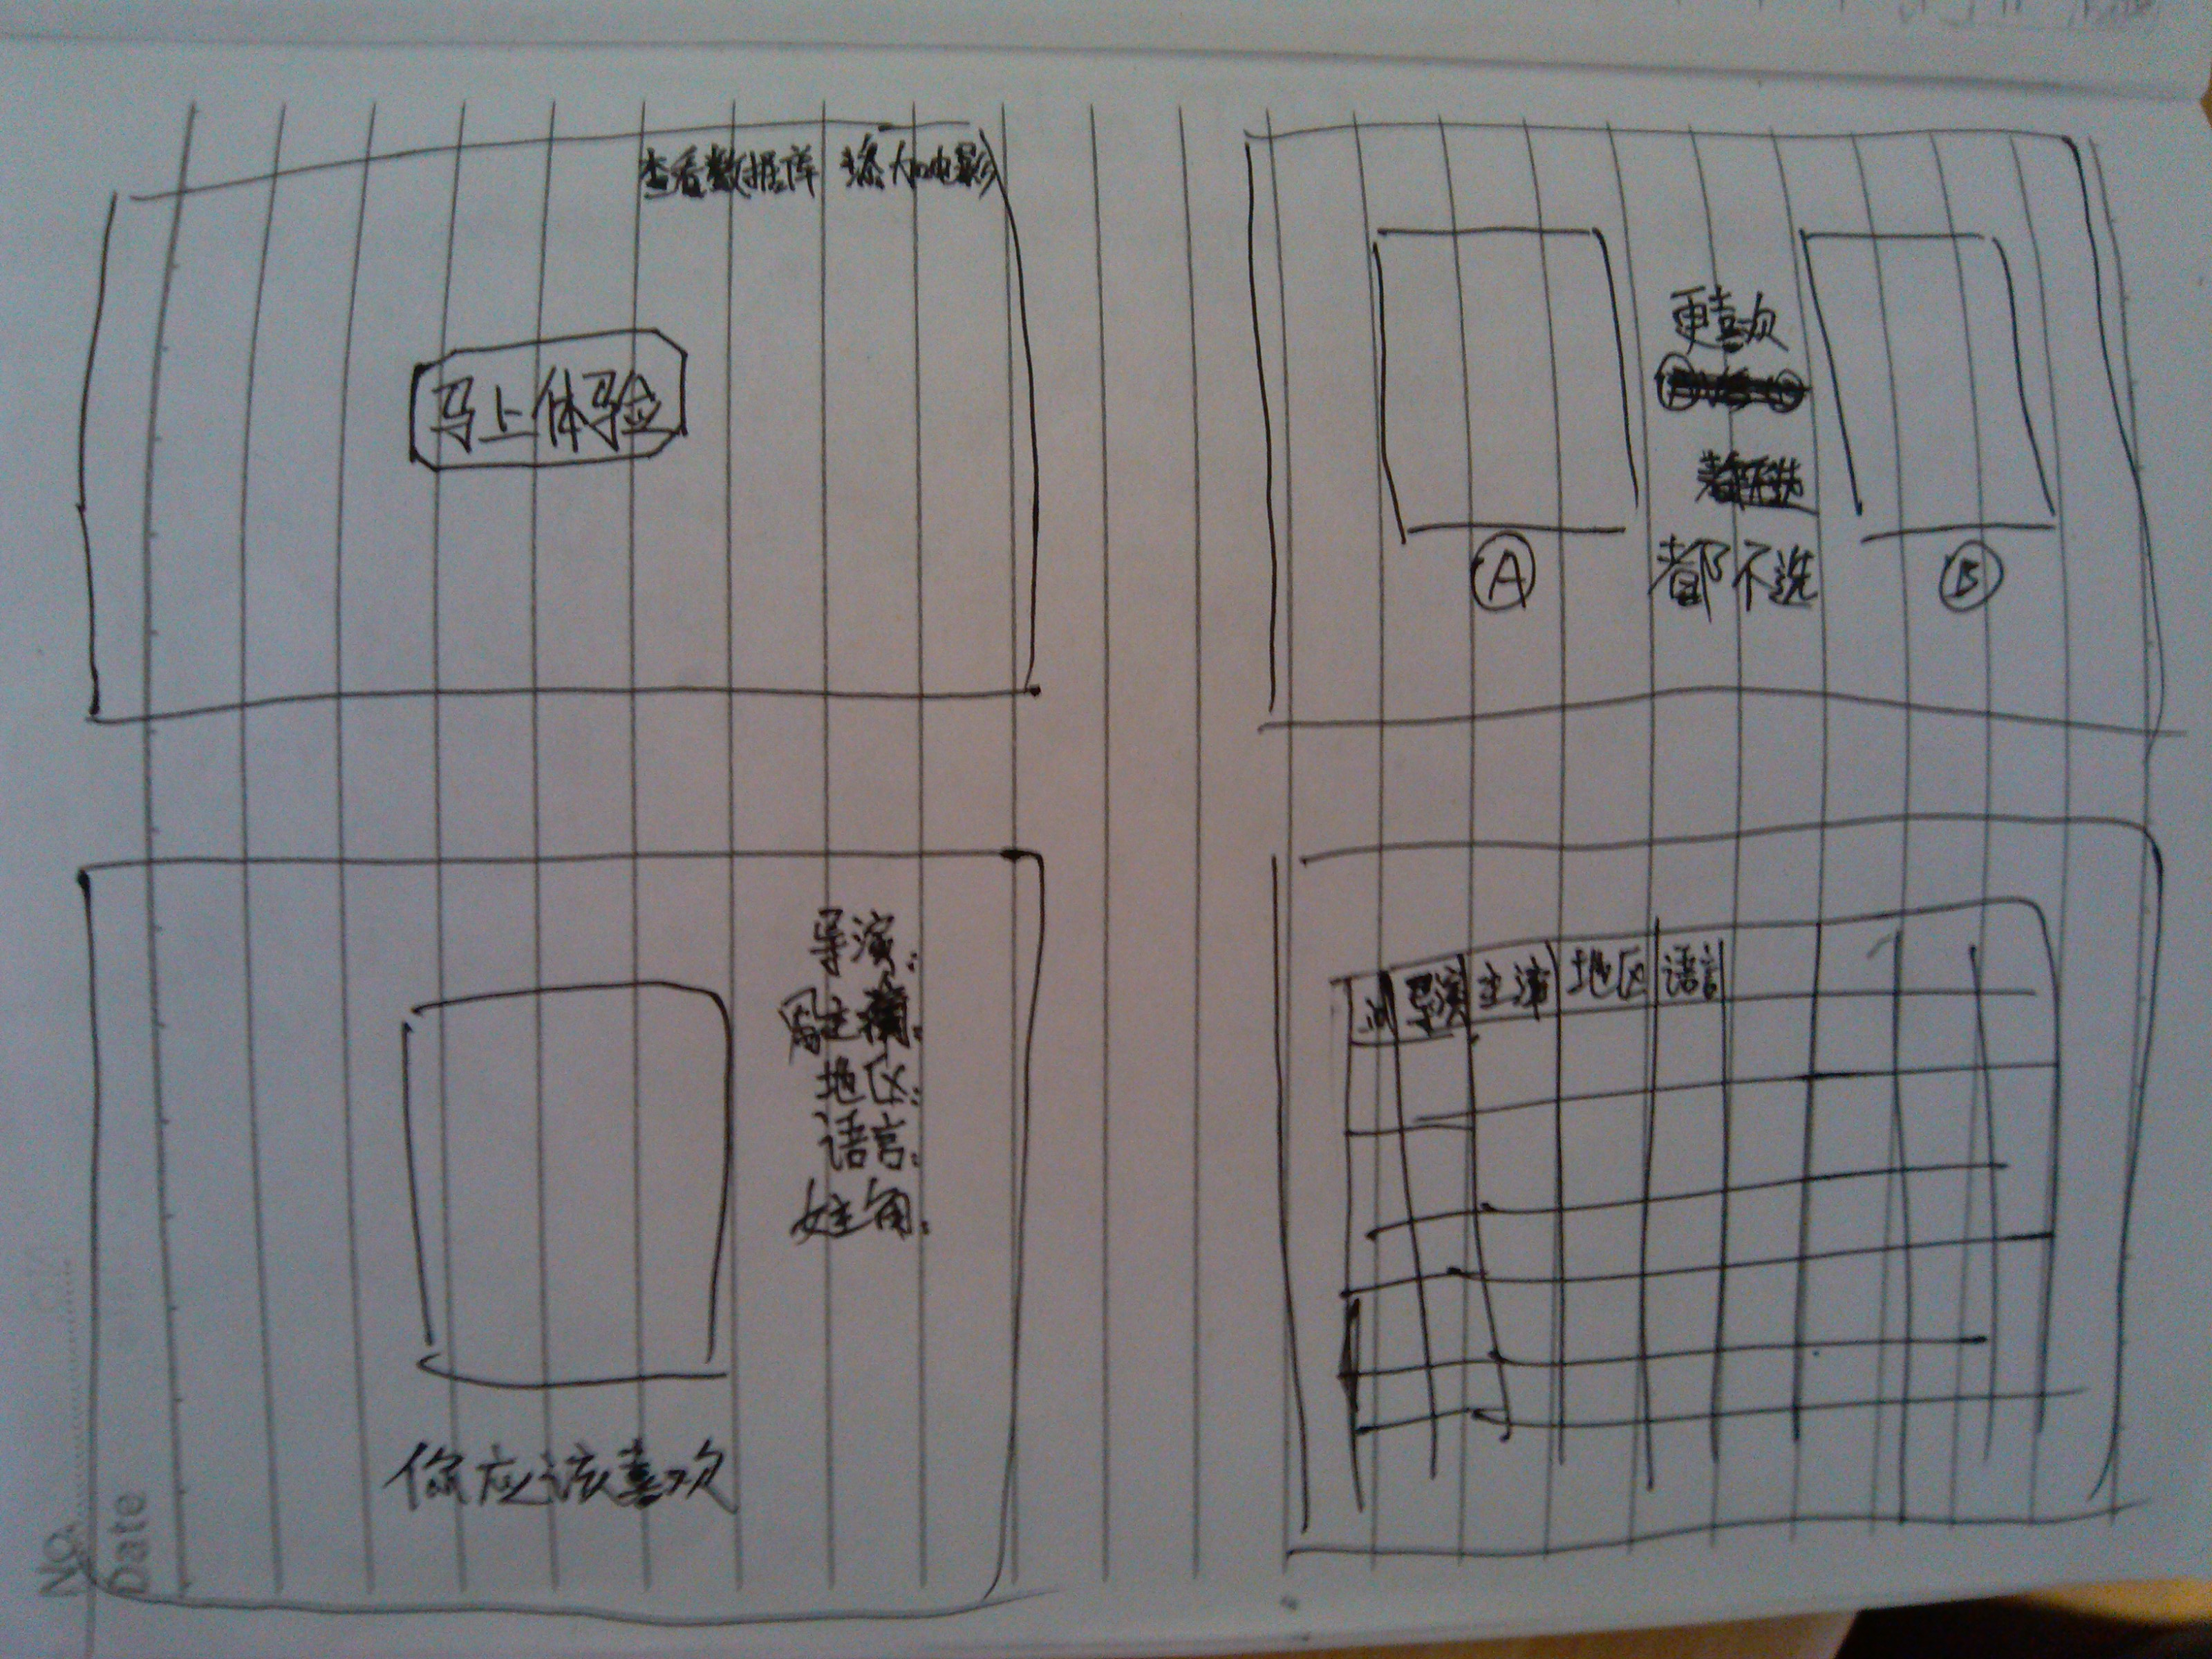 查看数据库 添加电影
马上体验
更喜欢
都不选
A
B
导演:
主演:
地区:
语言:
你应该喜欢
导演 主演 地区 语言
NO.
Date